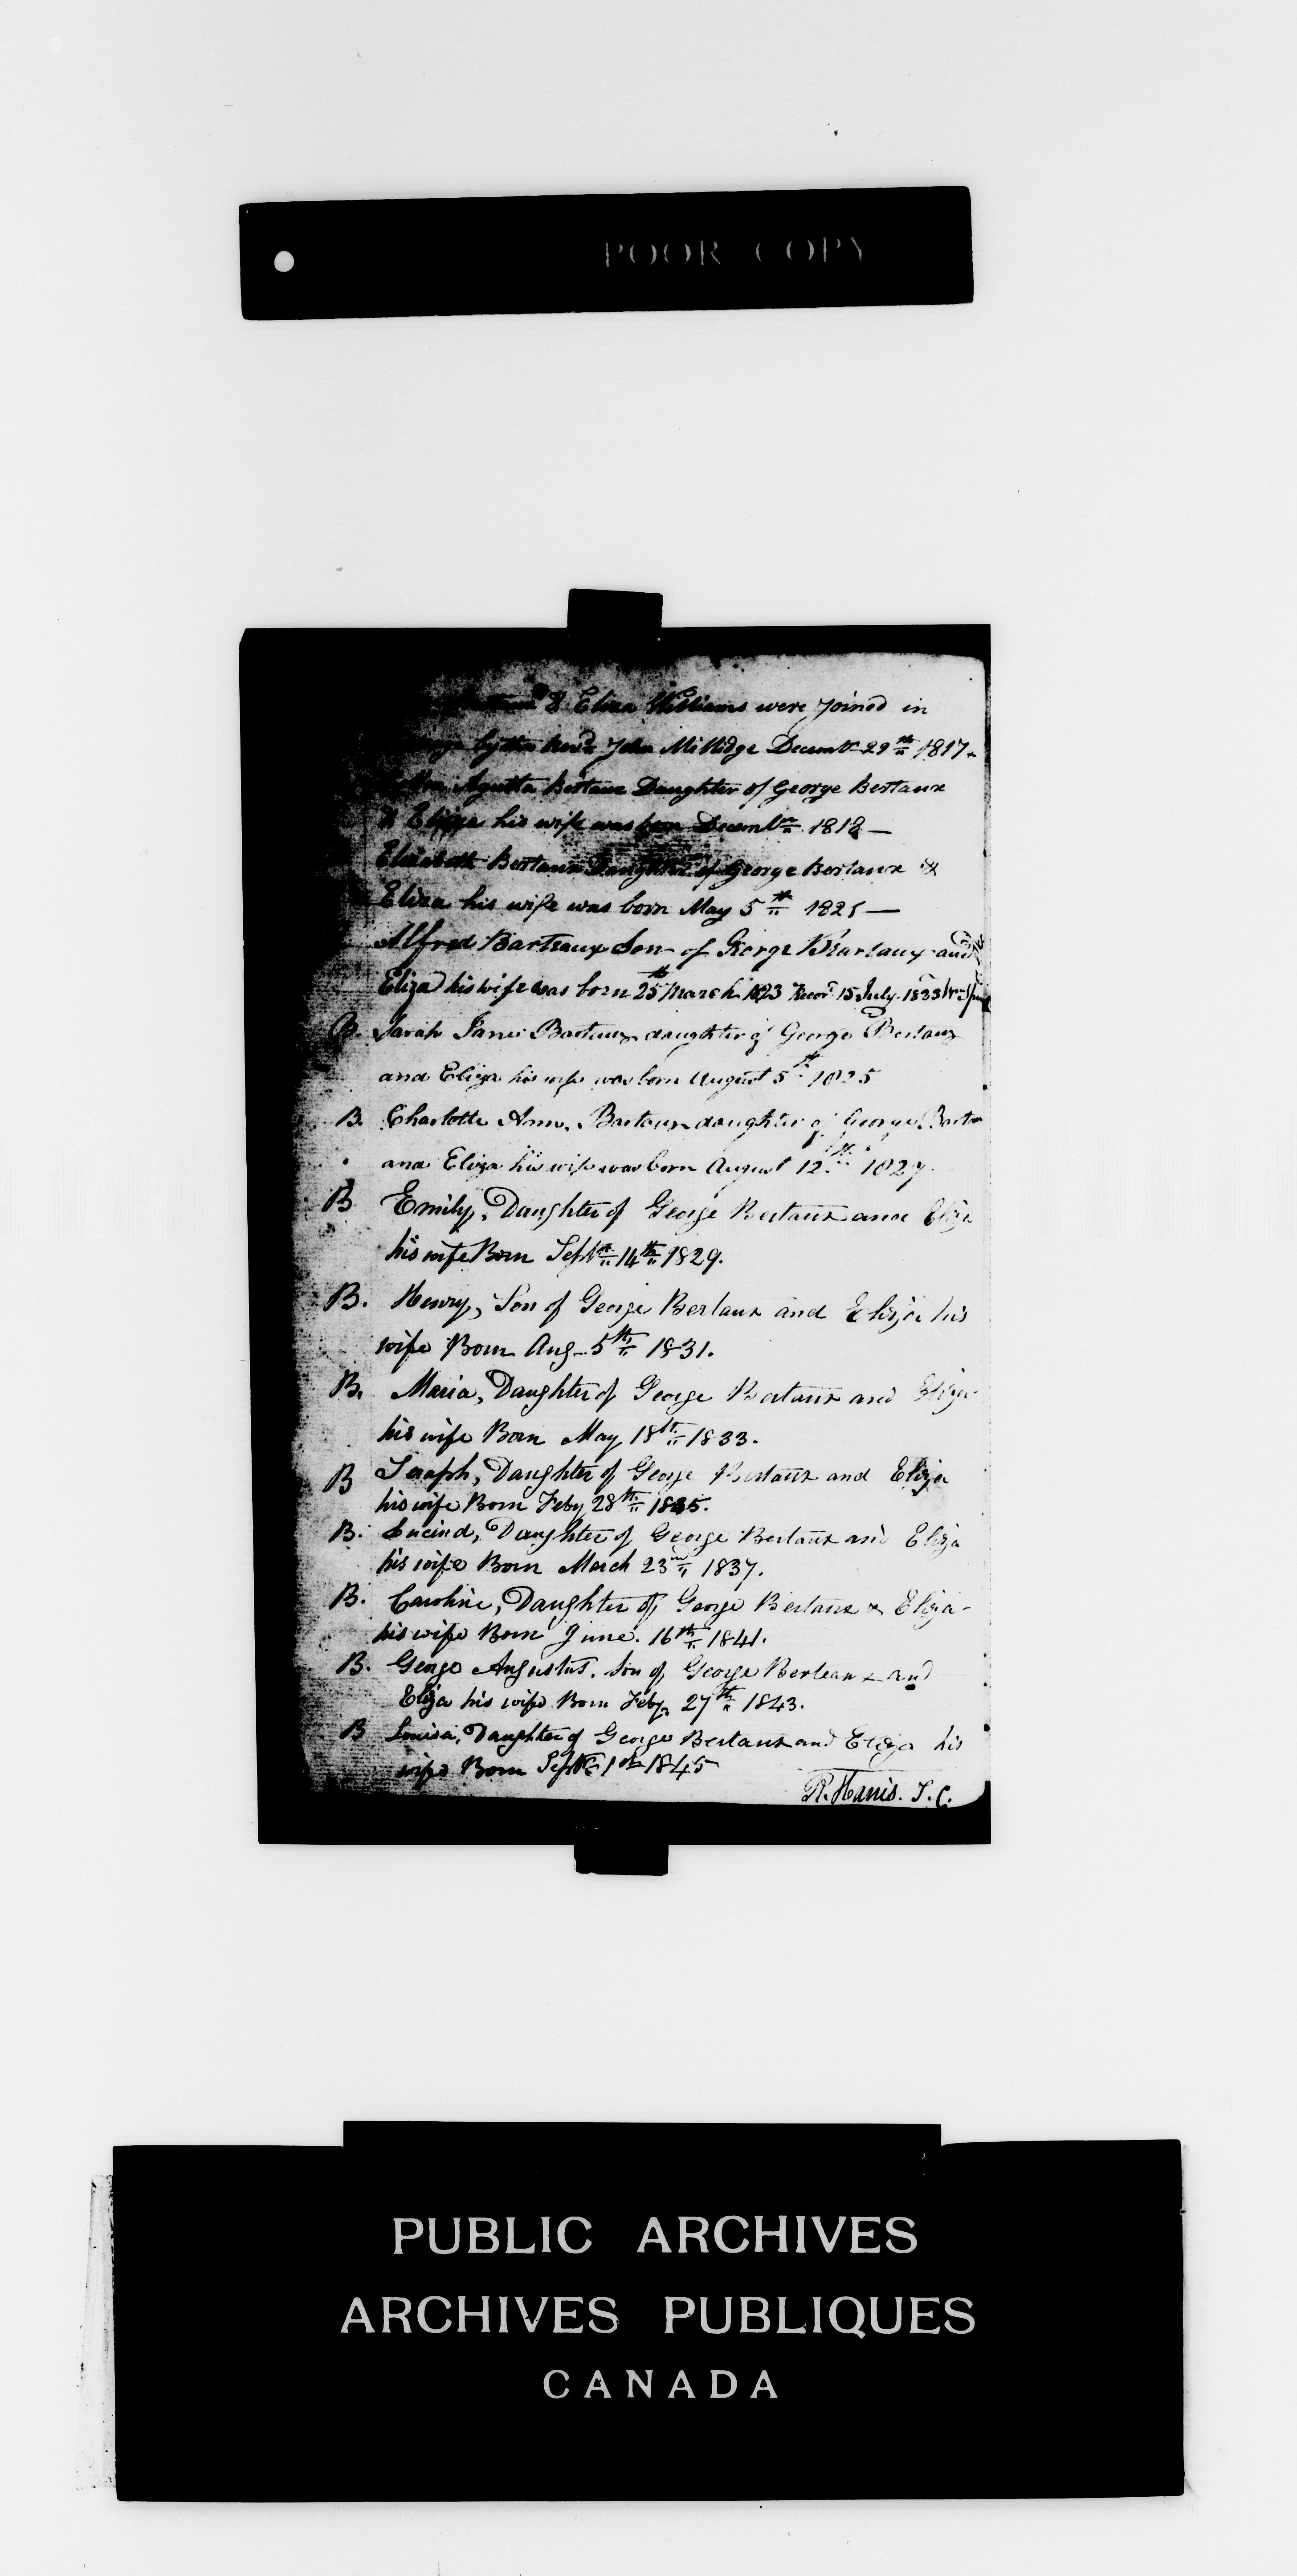 POOR COPY
& Eliza Williams were Joined in
by the Revd John Millidge Decembr 29th 1817
Agusta Bertaux Daughter of George Bertaux
& Eliza his wife was born Decembr 1818 —
Elizabeth Bertaux Daughter of George Bertaux &
Eliza his wife was born May 5th 1821 —
Alfred Barteaux Son of George Bartaux and
Eliza his wife was born 25th March 1823 Recor 15 July 1833
B. Sarah Jane Bartaux daughter of George Bertaux
and Eliza his wife was born August 5th 1825
B. Charlotte Ann, Bartaux daughter of George Bartau
and Eliza his wife was born August 12th 1827.
B Emily, Daughter of George Bertaux and Eliza
his wife Born Septr 14th 1829.
B. Henry, Son of George Bertaux and Eliza his
wife Born Aug 5th 1831.
B. Maria, Daughter of George Bertaux and Eliza
his wife Born May 18th 1833.
B Seraph, Daughter of George Bertaux and Eliza
his wife Born Feby 28th 1835.
B. Lucind, Daughter of George Bertaux and Eliza
his wife Born March 23rd 1837.
B. Caroline, Daughter of George Bertaux & Eliza
his wife Born June. 16th 1841.
B. George Augustus. Son of George Berteaux and
Eliza his wife Born Feby 27th 1843.
B Louisa, Daughter of George Bertaux and Eliza his
wife Born Septr 1st 1845
R. Harris. T.C.
PUBLIC ARCHIVES
ARCHIVES PUBLIQUES
CANADA